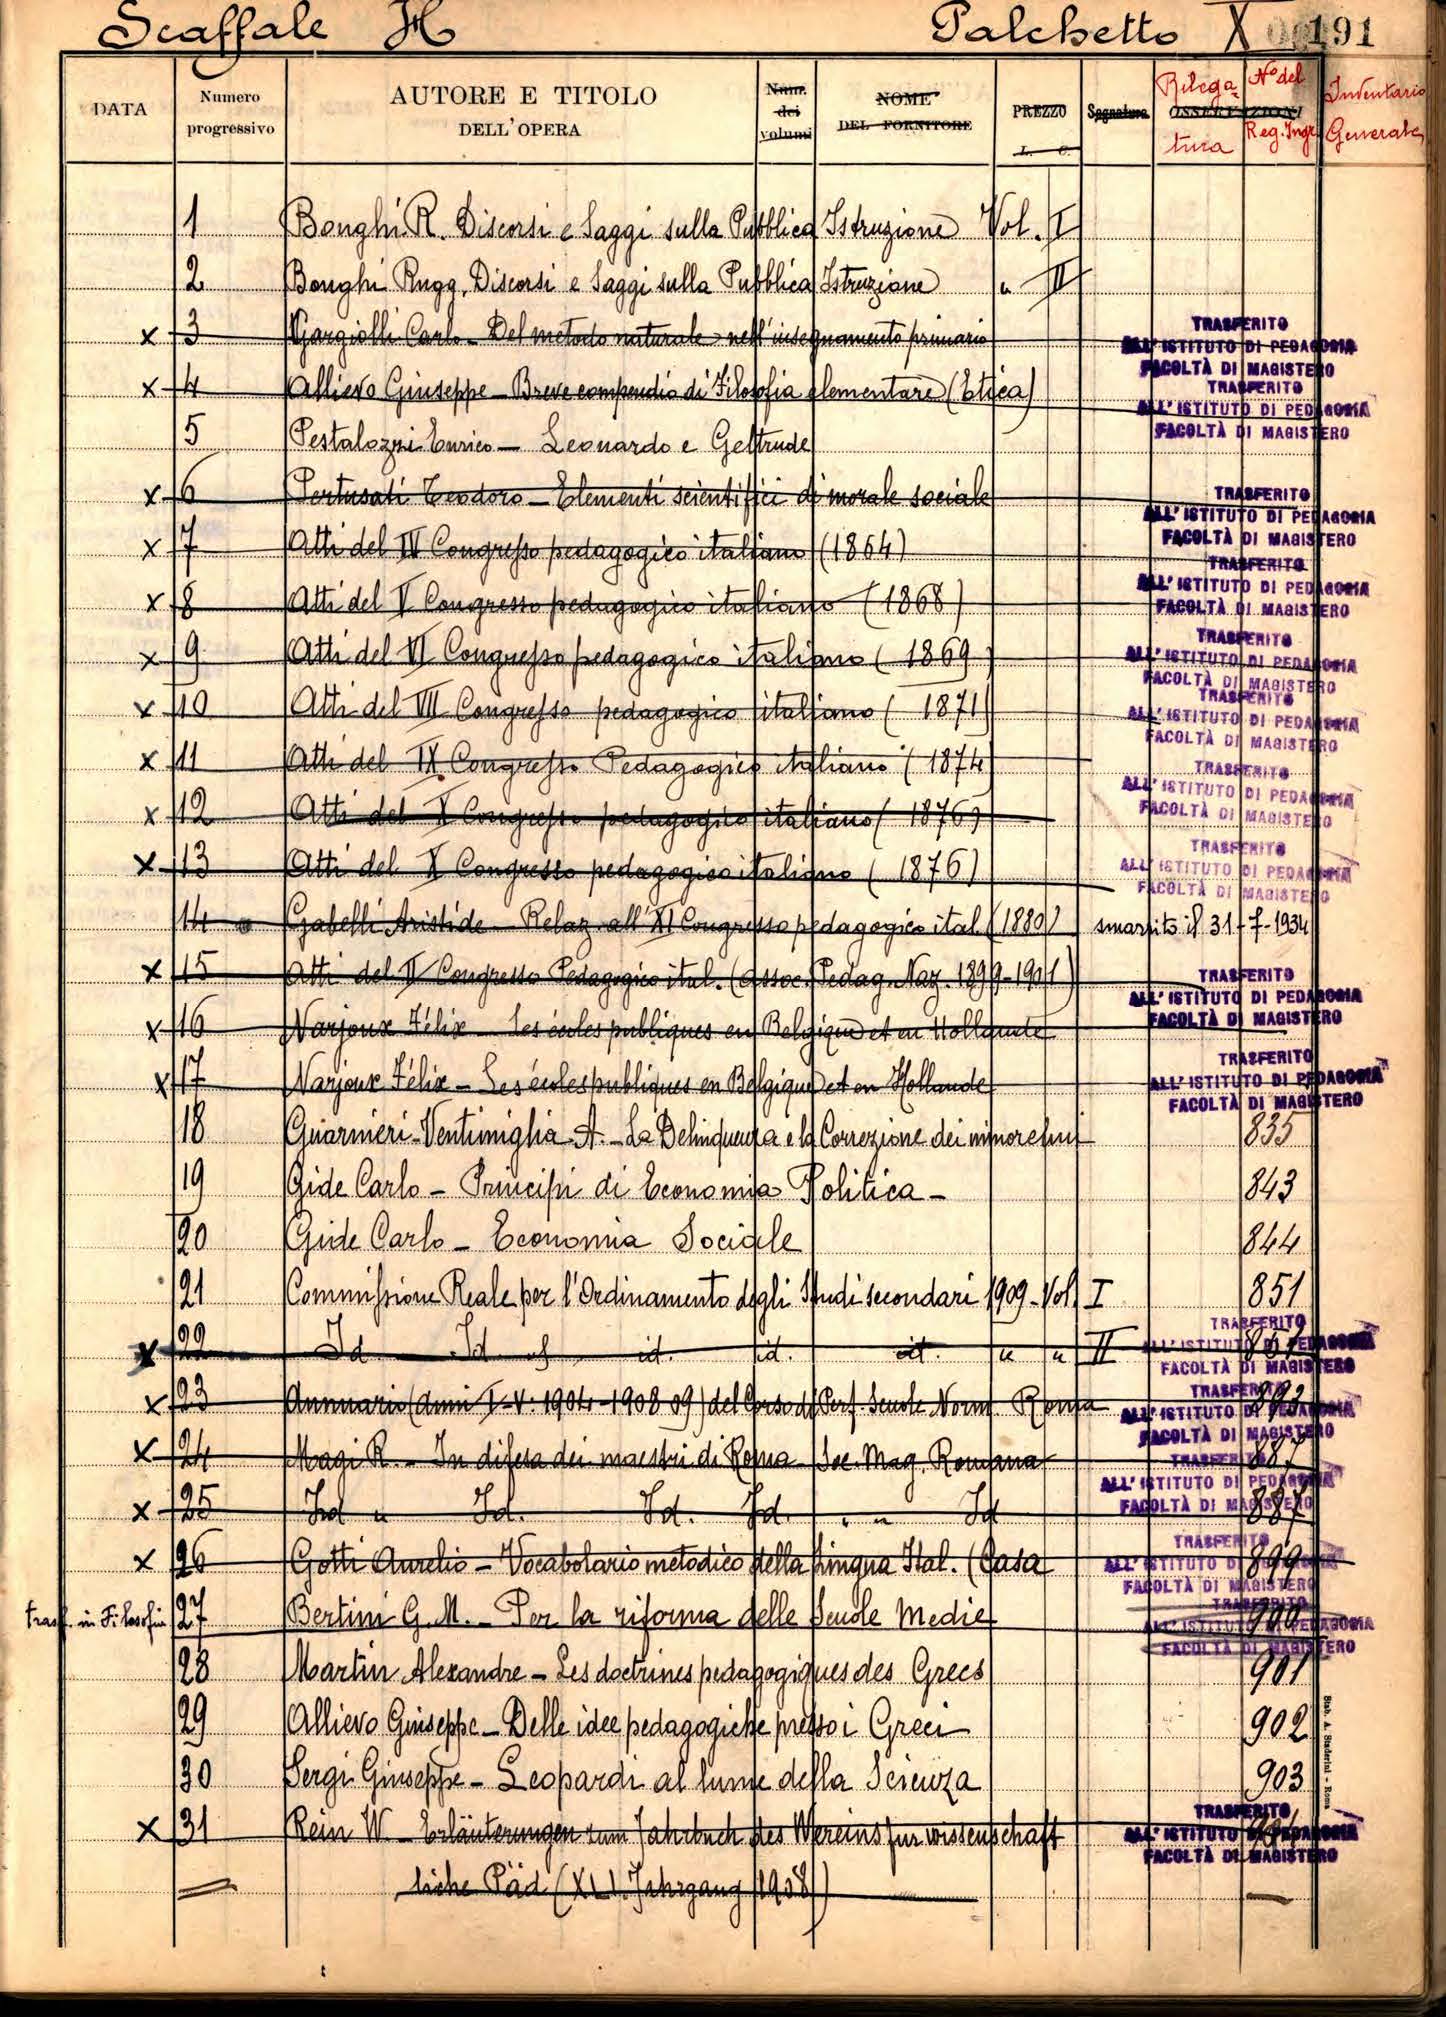 Scaffale H Palchetto X 191
DATA Numero progressivo AUTORE E TITOLO DELL'OPERA Num. dei volumi NOME DEL FORNITORE PREZZO L. C. Segnatura OSSERVAZIONI Rilega=tura N° del Reg. Ingr. Inventario Generale
1 Bonghi R. Discorsi e Saggi sulla Pubblica Istruzione Vol. I
2 Bonghi Rugg. Discorsi e Saggi sulla Pubblica Istruzione " II
x 3 Gargiolli Carlo - Del metodo naturale nell'insegnamento primario TRASFERITO ALL'ISTITUTO DI PEDAGOGIA FACOLTÀ DI MAGISTERO
x 4 Allievo Giuseppe - Breve compendio di Filosofia elementare (Etica) TRASFERITO ALL'ISTITUTO DI PEDAGOGIA FACOLTÀ DI MAGISTERO
5 Pestalozzi Enrico - Leonardo e Geltrude
x 6 Pertusati Teodoro - Elementi scientifici di morale sociale TRASFERITO ALL'ISTITUTO DI PEDAGOGIA FACOLTÀ DI MAGISTERO
x 7 Atti del IV Congresso pedagogico italiano (1864)
x 8 Atti del V Congresso pedagogico italiano (1868) TRASFERITO ALL'ISTITUTO DI PEDAGOGIA FACOLTÀ DI MAGISTERO
x 9 Atti del VI Congresso pedagogico italiano (1869) TRASFERITO ALL'ISTITUTO DI PEDAGOGIA FACOLTÀ DI MAGISTERO
x 10 Atti del VII Congresso pedagogico italiano (1871) TRASFERITO ALL'ISTITUTO DI PEDAGOGIA FACOLTÀ DI MAGISTERO
x 11 Atti del IX Congresso Pedagogico italiano (1874) TRASFERITO ALL'ISTITUTO DI PEDAGOGIA FACOLTÀ DI MAGISTERO
x 12 Atti del X Congresso pedagogico italiano (1876)
x 13 Atti del X Congresso pedagogico italiano (1876) TRASFERITO ALL'ISTITUTO DI PEDAGOGIA FACOLTÀ DI MAGISTERO
14 Gabelli Aristide - Relaz. all'XI Congresso pedagogico ital. (1880) smarrito il 31-7-1934
x 15 Atti del II Congresso Pedagogico ital. (Assoc. Pedag. Naz. 1899-1901) TRASFERITO ALL'ISTITUTO DI PEDAGOGIA FACOLTÀ DI MAGISTERO
x 16 Narjoux Félix - Les écoles publiques en Belgique et en Hollande
x 17 Narjoux Félix - Les écoles publiques en Belgique et en Hollande TRASFERITO ALL'ISTITUTO DI PEDAGOGIA FACOLTÀ DI MAGISTERO
18 Guarnieri-Ventimiglia A. - La Delinquenza e la Correzione dei minorenni 835
19 Gide Carlo - Principi di Economia Politica - 843
20 Gide Carlo - Economia Sociale 844
21 Commissione Reale per l'Ordinamento degli Studi secondari 1909 - Vol. I 851
x 22 Id Id id. id. id. " " II TRASFERITO ALL'ISTITUTO DI PEDAGOGIA FACOLTÀ DI MAGISTERO
x 23 Annuario (anni I-V. 1904-1908-09) del Corso di Perf. Scuole Norm. Roma 893 TRASFERITO ALL'ISTITUTO DI PEDAGOGIA FACOLTÀ DI MAGISTERO
x 24 Magi R. - In difesa dei maestri di Roma - Soc. Mag. Romana 887
x 25 Id " Id. Id. Id. " " Id 887 TRASFERITO ALL'ISTITUTO DI PEDAGOGIA FACOLTÀ DI MAGISTERO
x 26 Gotti Aurelio - Vocabolario metodico della Lingua Ital. (Casa 899 TRASFERITO ALL'ISTITUTO DI PEDAGOGIA FACOLTÀ DI MAGISTERO
trasf. in Filosofia 27 Bertini G. M. - Per la riforma delle Scuole Medie 900 TRASFERITO ALL'ISTITUTO DI PEDAGOGIA FACOLTÀ DI MAGISTERO
28 Martin Alexandre - Les doctrines pedagogiques des Grecs 901
29 Allievo Giuseppe - Delle idee pedagogiche presso i Greci 902
30 Sergi Giuseppe - Leopardi al lume della Scienza 903
x 31 Rein W. - Erläuterungen zum Jahrbuch des Vereins fur wissenschaft TRASFERITO ALL'ISTITUTO DI PEDAGOGIA FACOLTÀ DI MAGISTERO
liche Päd (XLI. Jahrgang 1908)
Stab. A. Staderini - Roma